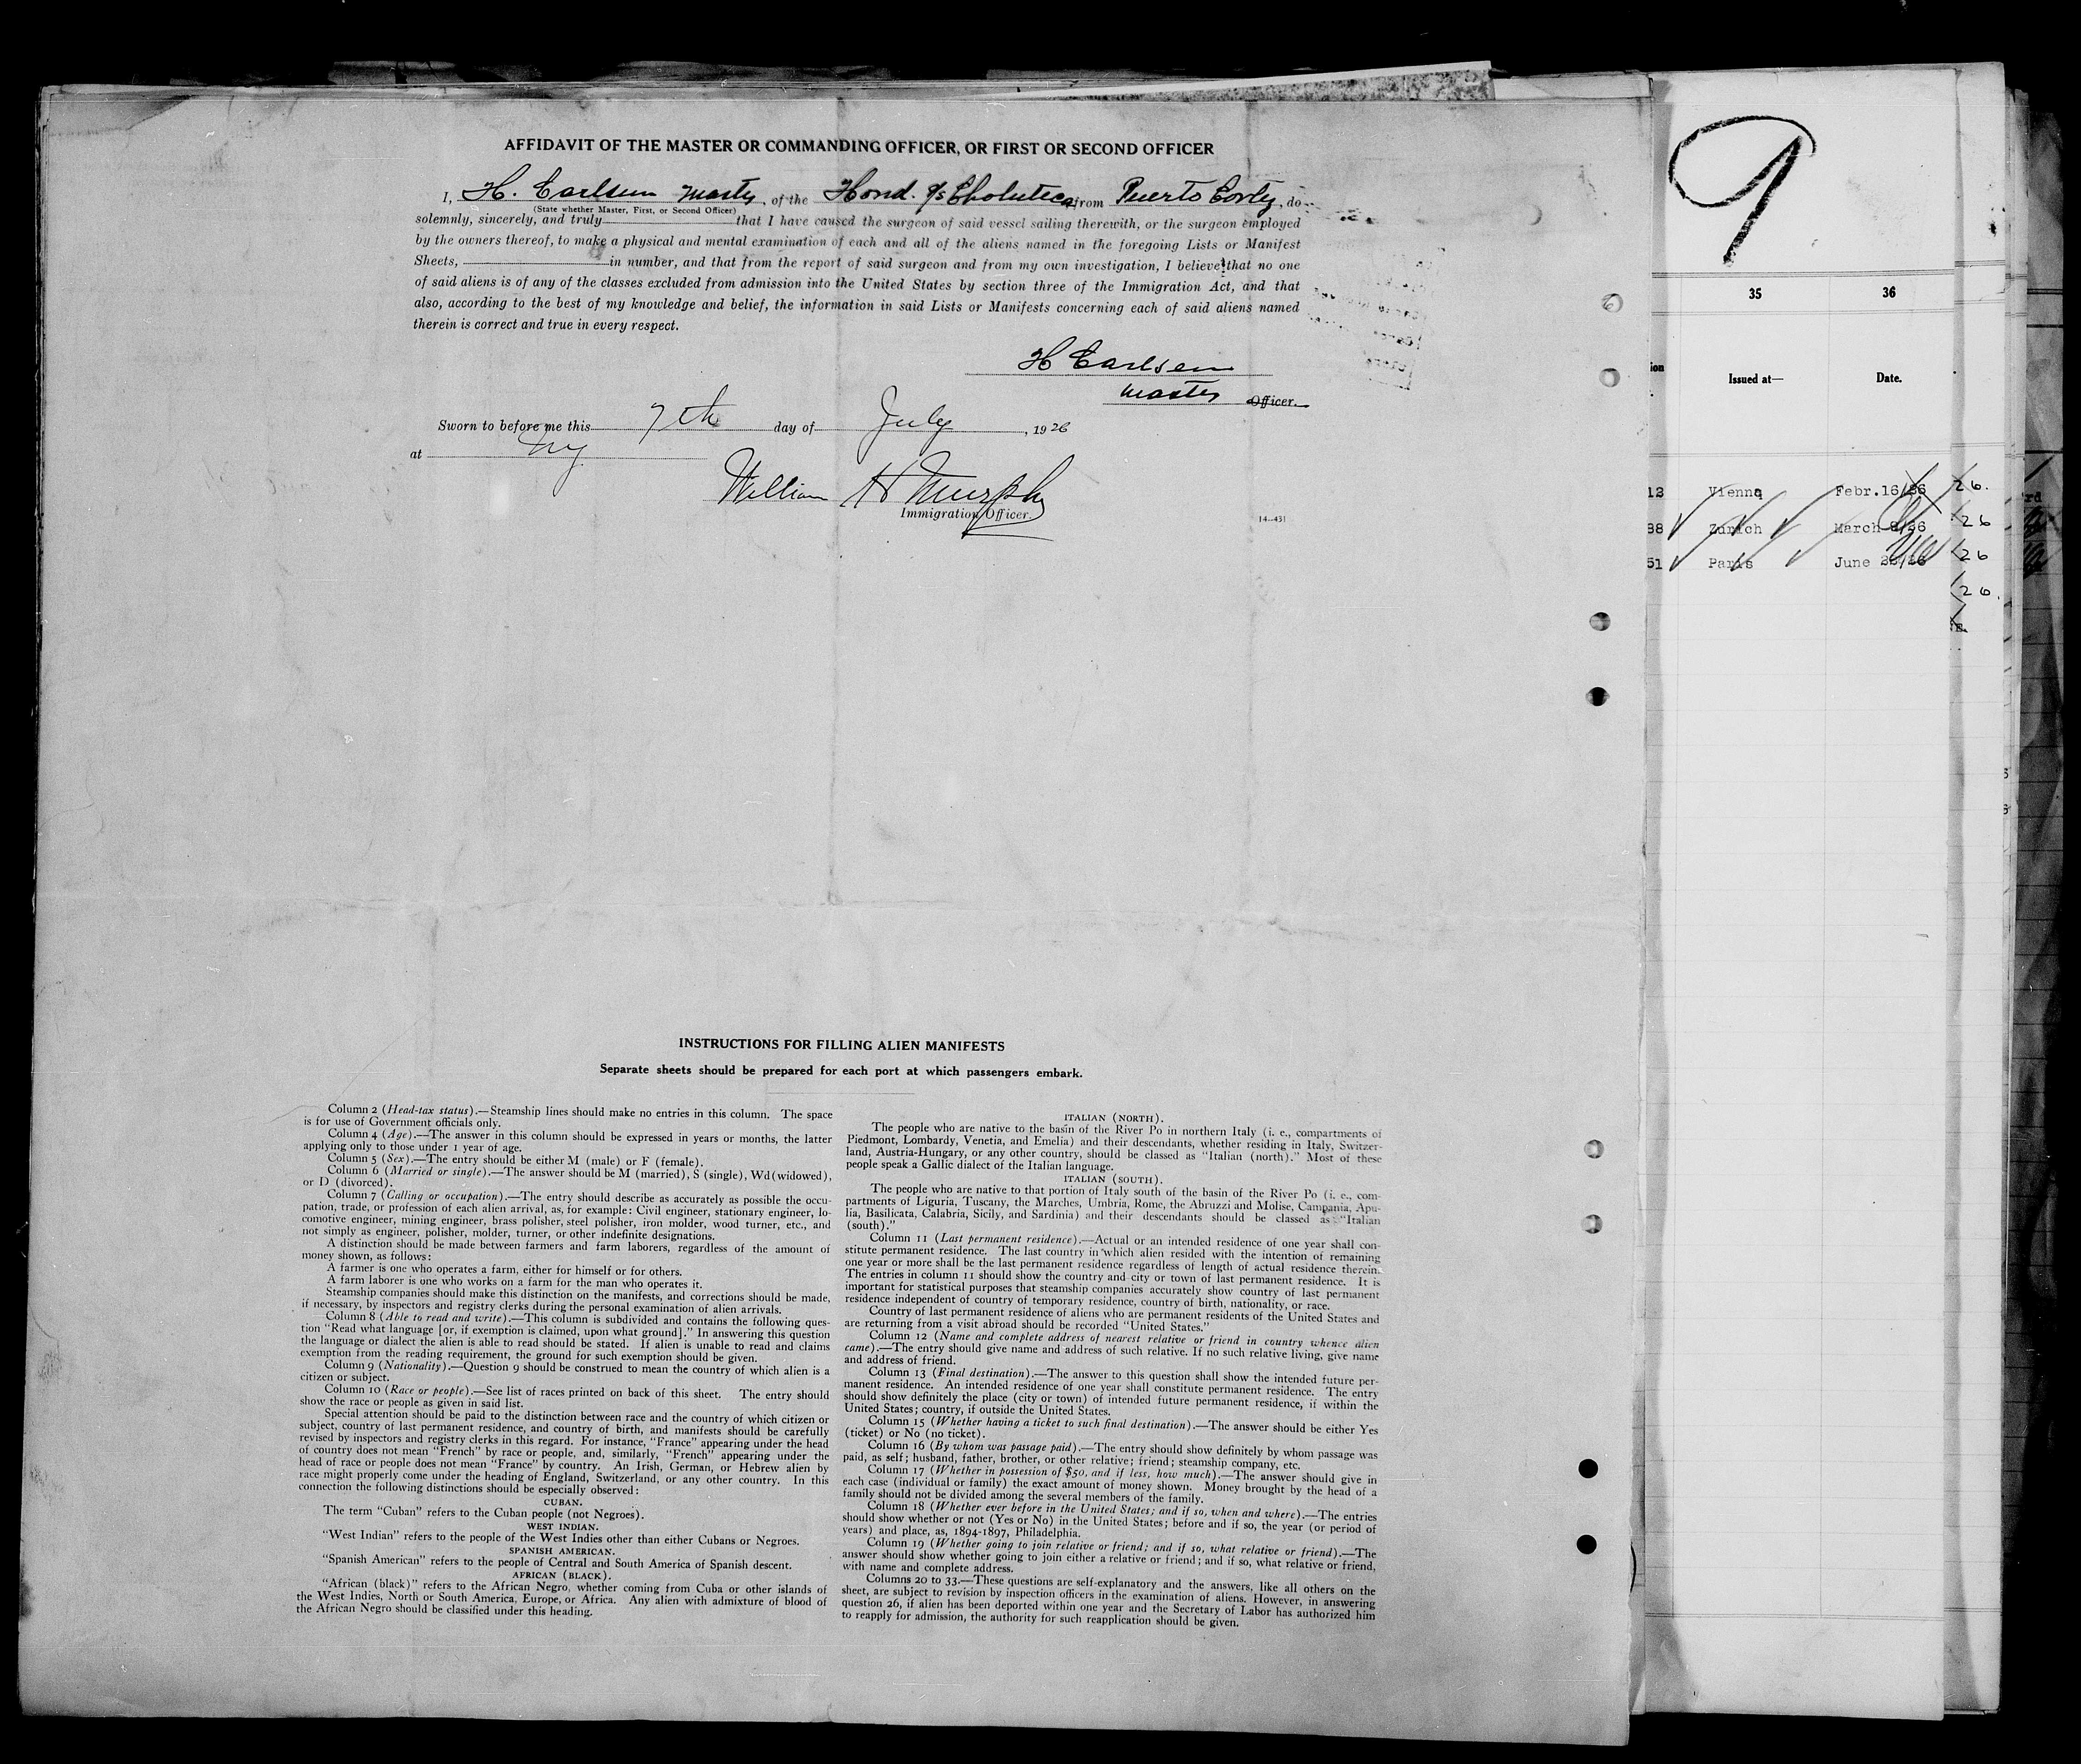 AFFIDAVIT OF THE MASTER OR COMMANDING OFFICER, OR FIRST OR SECOND OFFICER
I, H. Carlsen Master, of the Hond. S/S Choluteca from Puerto Cortez, do
(State whether Master, First, or Second Officer)
solemnly, sincerely, and truly that I have caused the surgeon of said vessel sailing therewith, or the surgeon employed
by the owners thereof, to make a physical and mental examination of each and all of the aliens named in the foregoing Lists or Manifest
Sheets, in number, and that from the report of said surgeon and from my own investigation, I believe that no one
of said aliens is of any of the classes excluded from admission into the United States by section three of the Immigration Act, and that
also, according to the best of my knowledge and belief, the information in said Lists or Manifests concerning each of said aliens named
therein is correct and true in every respect.
H Carlsen
Master Officer.
Sworn to before me this 7th day of July, 1926
at NY
William H Murphy
Immigration Officer.
14-431
INSTRUCTIONS FOR FILLING ALIEN MANIFESTS
Separate sheets should be prepared for each port at which passengers embark.
Column 2 (Head-tax status).—Steamship lines should make no entries in this column. The space
is for use of Government officials only.
Column 4 (Age).—The answer in this column should be expressed in years or months, the latter
applying only to those under 1 year of age.
Column 5 (Sex).—The entry should be either M (male) or F (female).
Column 6 (Married or single).—The answer should be M (married), S (single), Wd (widowed),
or D (divorced).
Column 7 (Calling or occupation).—The entry should describe as accurately as possible the occu-
pation, trade, or profession of each alien arrival, as, for example: Civil engineer, stationary engineer, lo-
comotive engineer, mining engineer, brass polisher, steel polisher, iron molder, wood turner, etc., and
not simply as engineer, polisher, molder, turner, or other indefinite designations.
A distinction should be made between farmers and farm laborers, regardless of the amount of
money shown, as follows:
A farmer is one who operates a farm, either for himself or for others.
A farm laborer is one who works on a farm for the man who operates it.
Steamship companies should make this distinction on the manifests, and corrections should be made,
if necessary, by inspectors and registry clerks during the personal examination of alien arrivals.
Column 8 (Able to read and write).—This column is subdivided and contains the following ques-
tion "Read what language [or, if exemption is claimed, upon what ground]." In answering this question
the language or dialect the alien is able to read should be stated. If alien is unable to read and claims
exemption from the reading requirement, the ground for such exemption should be given.
Column 9 (Nationality).—Question 9 should be construed to mean the country of which alien is a
citizen or subject.
Column 10 (Race or people).—See list of races printed on back of this sheet. The entry should
show the race or people as given in said list.
Special attention should be paid to the distinction between race and the country of which citizen or
subject, country of last permanent residence, and country of birth, and manifests should be carefully
revised by inspectors and registry clerks in this regard. For instance, "France" appearing under the head
of country does not mean "French" by race or people, and, similarly, "French" appearing under the
head of race or people does not mean "France" by country. An Irish, German, or Hebrew alien by
race might properly come under the heading of England, Switzerland, or any other country. In this
connection the following distinctions should be especially observed:
CUBAN.
The term "Cuban" refers to the Cuban people (not Negroes).
WEST INDIAN.
"West Indian" refers to the people of the West Indies other than either Cubans or Negroes.
SPANISH AMERICAN.
"Spanish American" refers to the people of Central and South America of Spanish descent.
AFRICAN (BLACK).
"African (black)" refers to the African Negro, whether coming from Cuba or other islands of
the West Indies, North or South America, Europe, or Africa. Any alien with admixture of blood of
the African Negro should be classified under this heading.
ITALIAN (NORTH).
The people who are native to the basin of the River Po in northern Italy (i. e., compartments of
Piedmont, Lombardy, Venetia, and Emelia) and their descendants, whether residing in Italy, Switzer-
land, Austria-Hungary, or any other country, should be classed as "Italian (north)." Most of these
people speak a Gallic dialect of the Italian language.
ITALIAN (SOUTH).
The people who are native to that portion of Italy south of the basin of the River Po (i. e., com-
partments of Liguria, Tuscany, the Marches, Umbria, Rome, the Abruzzi and Molise, Campania, Apu-
lia, Basilicata, Calabria, Sicily, and Sardinia) and their descendants should be classed as "Italian
(south)."
Column 11 (Last permanent residence).—Actual or an intended residence of one year shall con-
stitute permanent residence. The last country in which alien resided with the intention of remaining
one year or more shall be the last permanent residence regardless of length of actual residence therein.
The entries in column 11 should show the country and city or town of last permanent residence. It is
important for statistical purposes that steamship companies accurately show country of last permanent
residence independent of country of temporary residence, country of birth, nationality, or race.
Country of last permanent residence of aliens who are permanent residents of the United States and
are returning from a visit abroad should be recorded "United States."
Column 12 (Name and complete address of nearest relative or friend in country whence alien
came).—The entry should give name and address of such relative. If no such relative living, give name
and address of friend.
Column 13 (Final destination).—The answer to this question shall show the intended future per-
manent residence. An intended residence of one year shall constitute permanent residence. The entry
should show definitely the place (city or town) of intended future permanent residence, if within the
United States; country, if outside the United States.
Column 15 (Whether having a ticket to such final destination).—The answer should be either Yes
(ticket) or No (no ticket).
Column 16 (By whom was passage paid).—The entry should show definitely by whom passage was
paid, as self; husband, father, brother, or other relative; friend; steamship company, etc.
Column 17 (Whether in possession of $50, and if less, how much).—The answer should give in
each case (individual or family) the exact amount of money shown. Money brought by the head of a
family should not be divided among the several members of the family.
Column 18 (Whether ever before in the United States; and if so, when and where).—The entries
should show whether or not (Yes or No) in the United States; before and if so, the year (or period of
years) and place, as, 1894-1897, Philadelphia.
Column 19 (Whether going to join relative or friend; and if so, what relative or friend).—The
answer should show whether going to join either a relative or friend; and if so, what relative or friend,
with name and complete address.
Columns 20 to 33.—These questions are self-explanatory and the answers, like all others on the
sheet, are subject to revision by inspection officers in the examination of aliens. However, in answering
question 26, if alien has been deported within one year and the Secretary of Labor has authorized him
to reapply for admission, the authority for such reapplication should be given.
9
35 36
ion Issued at— Date.
12 Vienna Febr.16/26 26.
88 Zurich March /26 26
51 Paris June /26 26
26.
rd